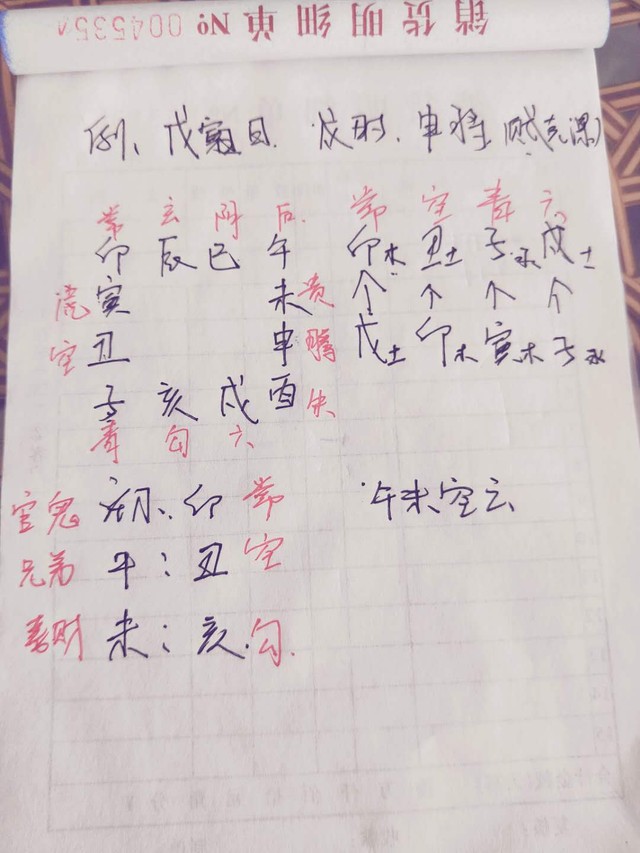 销货明细单 № 004535
例、戊寅日 戌时、申将 (贼克课)
常 玄 阴 后 常 空 青 六
卯 辰 巳 午 卯木 丑土 子水 戌土
虎 寅 未 贵 ↑ ↑ ↑ ↑
空 丑 申 螣 戊土 卯木 寅木 子水
子 亥 戌 酉 朱
青 勾 六
官鬼 初: 卯 常 午未空亡
兄弟 中: 丑 空
妻财 末: 亥 勾